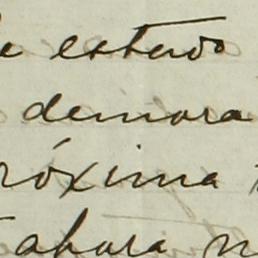 estado
demora
róxima
ahora n